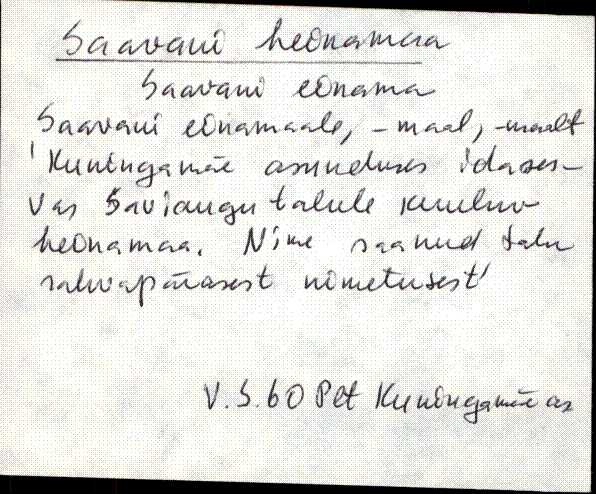 Saavani heonamaa
Saavani eonama
Saavani eonamaale, -maal, -maalt
'Kuningamäe asunduses idases-
vas Saviaugu talule kuuluv
heonamaa. Nime saanud talu
rahvapärasest nimetusest'
V.S. 60 Plt Kuningamäe as